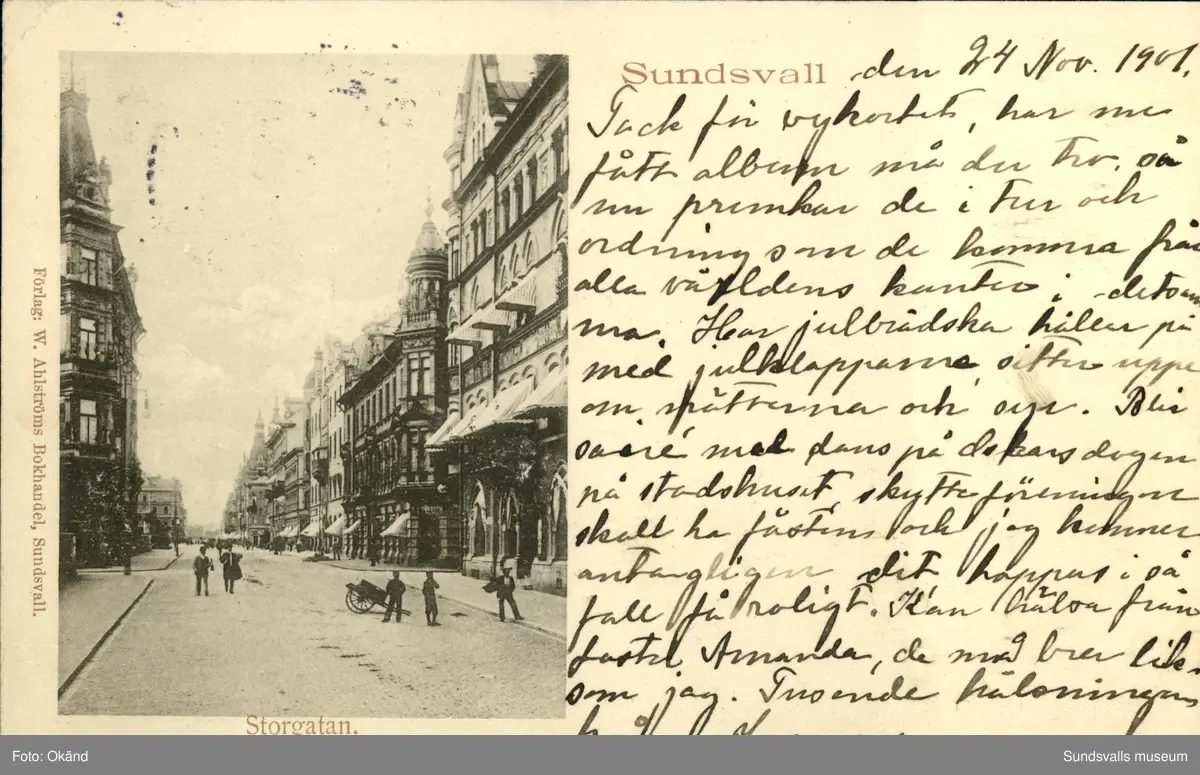 Sundsvall den 24 Nov. 1901.
Tack för vykortet, har nu
fått album må du tro, så
nu prunkar de i tur och
ordning som de komma från
alla världens kanter i detsam
ma. Har julbrådska håller på
med julklapparna, sitter uppe
om nätterna och syr. Blir
soaré med dans på dagen
på stadshuset, skytteföreningen
skall ha festen och jag kommer
antagligen dit, hoppas i så
fall få roligt. Kan hälsa från
faster Amanda, de må bra lik-
som jag. Tusende hälsningar
Storgatan.
Förlag: W. Ahlströms Bokhandel, Sundsvall.
Foto: Okänd
Sundsvalls museum